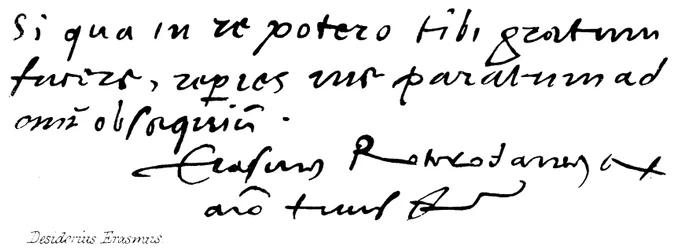 Si qua in re potero tibi gratum
facere, rep̱eries me paratum ad
omē obsequiū .
Erasmus Roterodamus ex
aīo tuus
Desiderius Erasmus